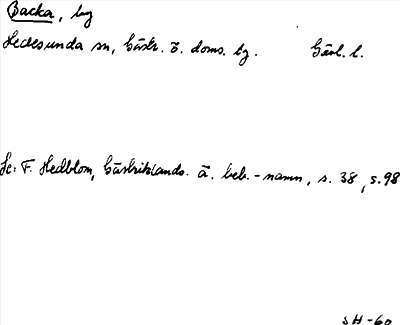 Backa, by
Hedesunda sn, Gästr. ö. doms. by. Gävl. l.
Se: F. Hedblom, Gästriklands ä. beb.-namn, s. 38, s. 98
SH-60